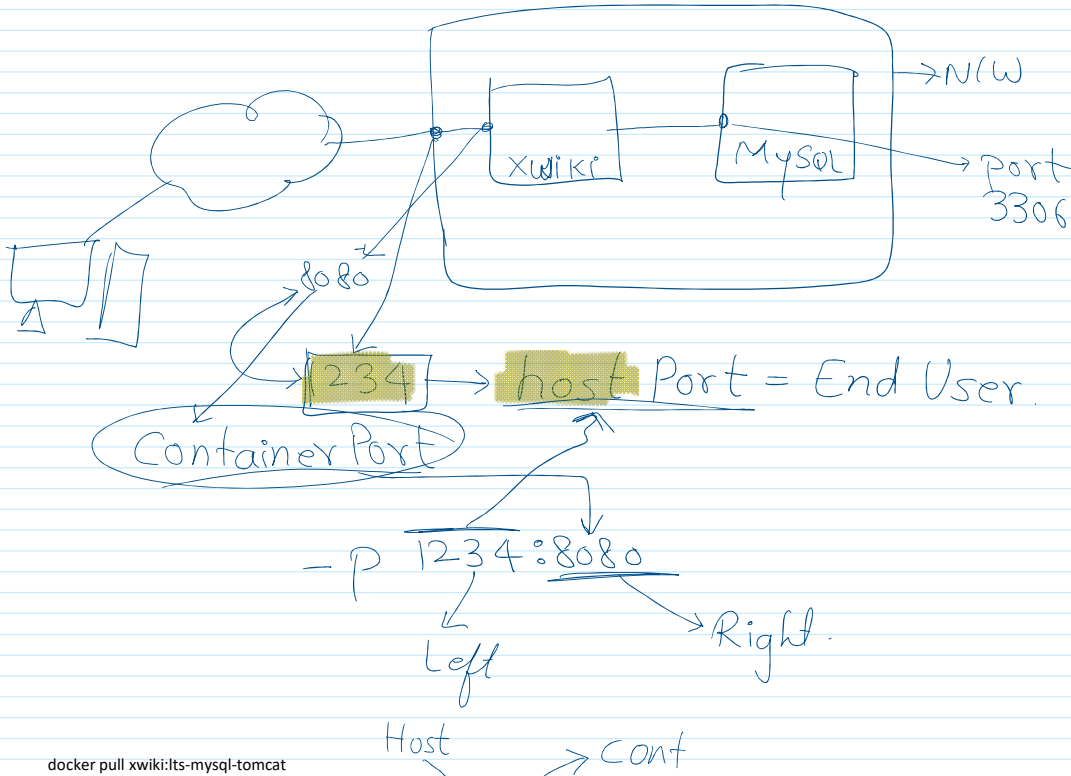 → N/W
XWiKi
MySQL
→ Port
3306
8080
1234 → host Port = End User.
Container Port
-p 1234:8080
Left
Right.
Host
→ Cont
docker pull xwiki:lts-mysql-tomcat